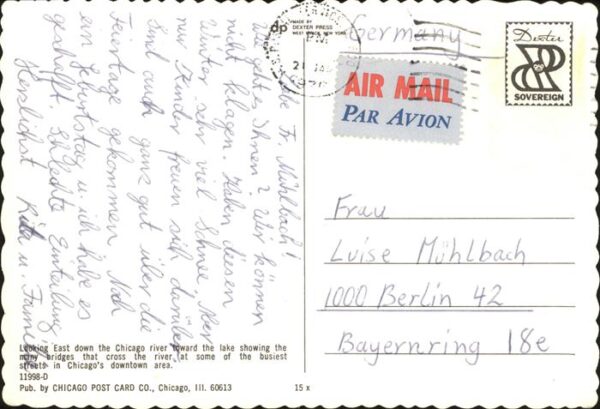 dp
MADE BY
DEXTER PRESS
WEST NYACK, NEW YORK
Germany
PM
AIR MAIL
PAR AVION
Dexter
SOVEREIGN
Liebe Fr. Mühlbach!
Wie geht es Ihnen? Wir können
nicht klagen. Haben diesen
Winter sehr viel Schnee. Aber
nur Kinder freuen sich darüber.
Sind auch ganz gut über die
Feiertage gekommen. Noch
ein Geburtstag u. ich habe es
geschafft. Schlechte Einteilung
Herzlichst Rita u. Familie
Frau
Luise Mühlbach
1000 Berlin 42
Bayernring 18e
Looking East down the Chicago river toward the lake showing the
many bridges that cross the river at some of the busiest
streets in Chicago's downtown area.
11998-D
Pub. by CHICAGO POST CARD CO., Chicago, Ill. 60613 15 x